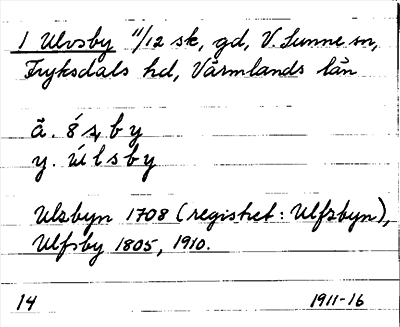 1 Ulvsby 11/12 sk, gd, V. Sunne sn,
Fryksdals hd, Värmlands län
ä. ó̈ s̨ b y
y. úlsby
Ulsbyn 1708 (registret: Ulfsbyn),
Ulfsby 1805, 1910.
14 1911-16